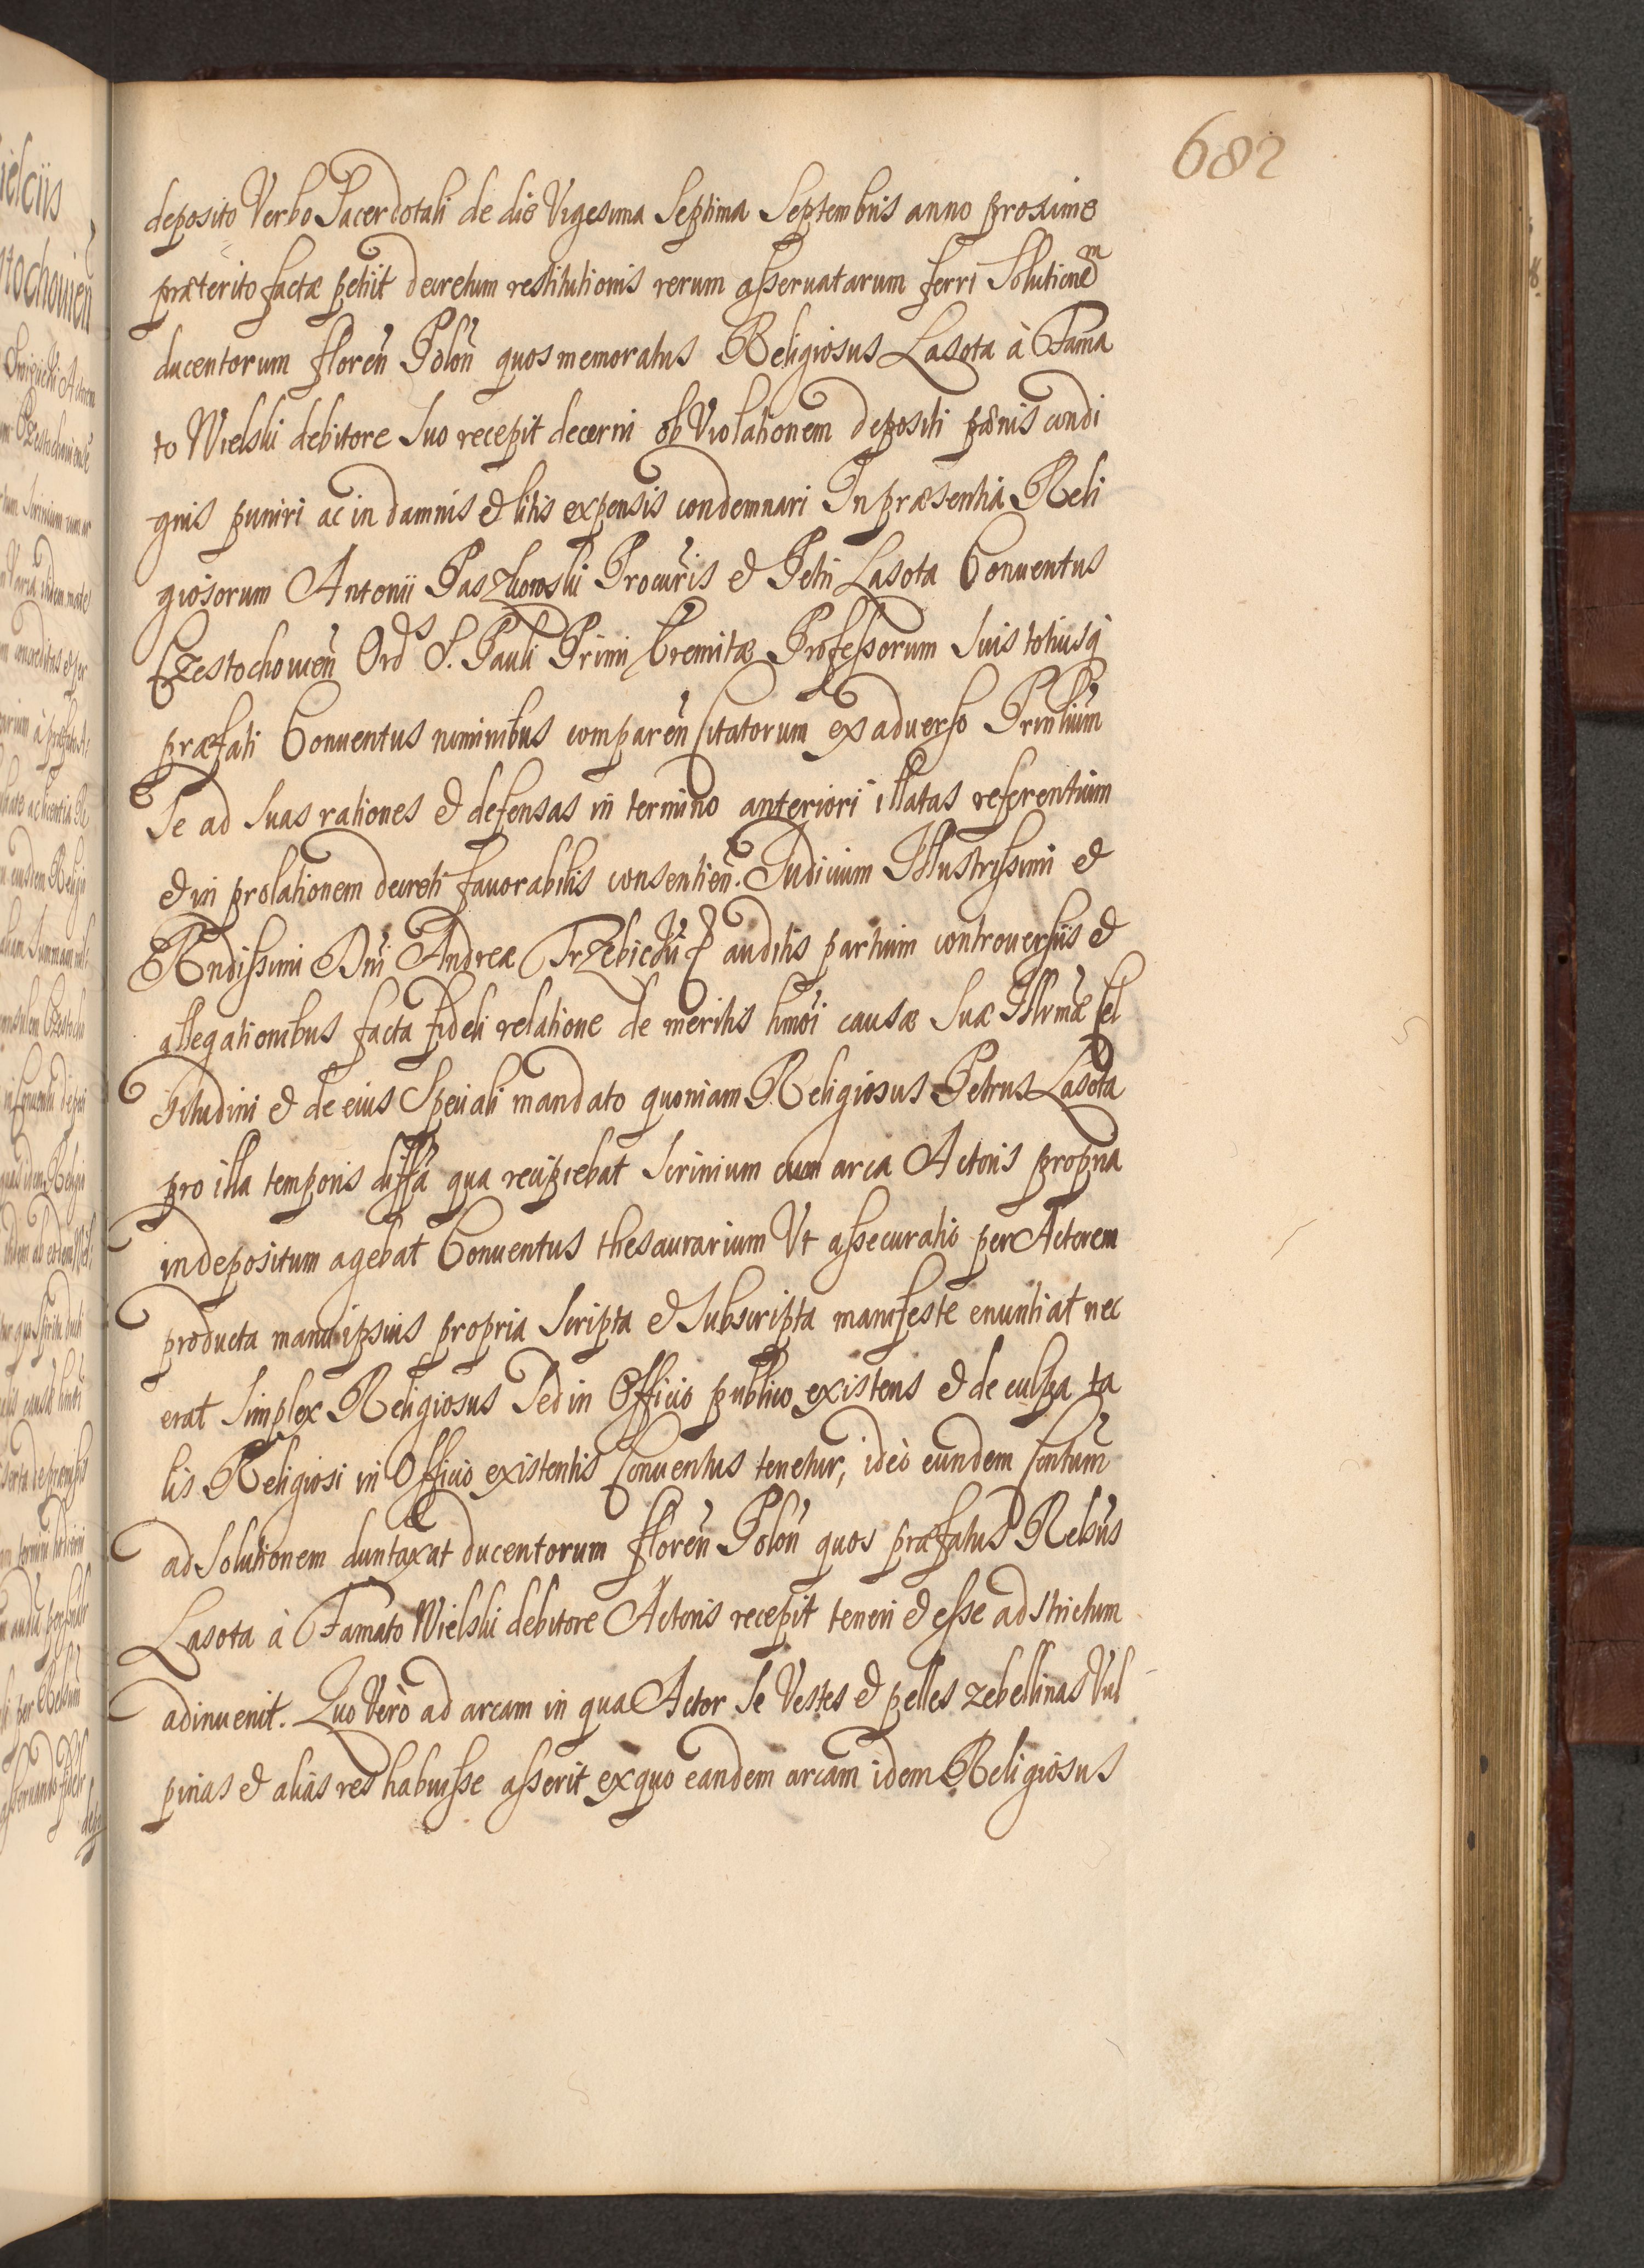 682
deposito Verbo Sacerdotali de die Vigesima Septima Septembris anno proxime
præterito factæ petiit decretum restitutionis rerum asseruatarum ferri Solutionem
ducentorum floreñ Poloñ quos memoratus Religiosus Lasota à Fama
to Wielski debitore Suo recepit decerni ob Violationem depositi pænis condi
gnis puniri ac in damnis & litis expensis condemnari In præsentia Reli
giosorum Antonii Paszkowski Procuris & Petri Lasota Conuentus
Czestochouieñ Ord S. Pauli Primi Eremitæ Professorum Suis totiusq
præfati Conuentus nominibusompareñ Citatorum ex aduerso Prinliũm
Se ad Suas rationes & defensas in termino anteriori illatas referentium
& in prolationem decreti fauorabilis consentieñ. Iudicium Illustrissimi &
Rndissimi Dñi Andreæ Trzebicki auditis partium controuersiis &
allegationibus facta fideli relatione de meritis hmõi causæ Suæ Illrmæ Cel
situdini & de eius Speciali mandato quoniam Religiosus Petrus Lasota
pro illa temporis diffã qua recipiebat Scrinium cum arca Actoris propria
in depositum agebat Conuentus thesaurarium Vt assecuratio per Actorem
producta manu ipsius propria Scripta & Subscripta manifeste enuntiat nec
erat Simplex Religiosus Sed in Officio publico existens & de culpa ta
lis Religiosi in Officio existentis Conuentus tenetur, ideò eundem Contum
ad Solutionem duntaxat ducentorum floreñ Poloñ quos præfatus Relsus
Lasota à Famato Wielski debitore Actoris recepit teneri & esse adstrictum
adinuenit. Quo Vero ad arcam in qua Actor Se Vestes & pelles zebellinas Vul
pinas & alias res habuisse asserit ex quo eandem arcam idem Religiosus